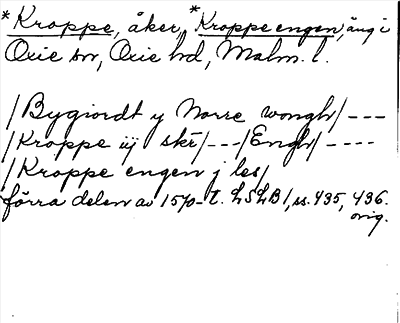 *Kroppe, åker, *Kroppe engen, äng i
Oxie sn, Oxie hd, Malm. l.
/Bygiordt y Norre wongh/---
/Kroppe iij skr/---/Engh/----
/Kroppe engen j les/
förra delen av 1570-t. LSLB 1, ss. 435, 436.
orig.